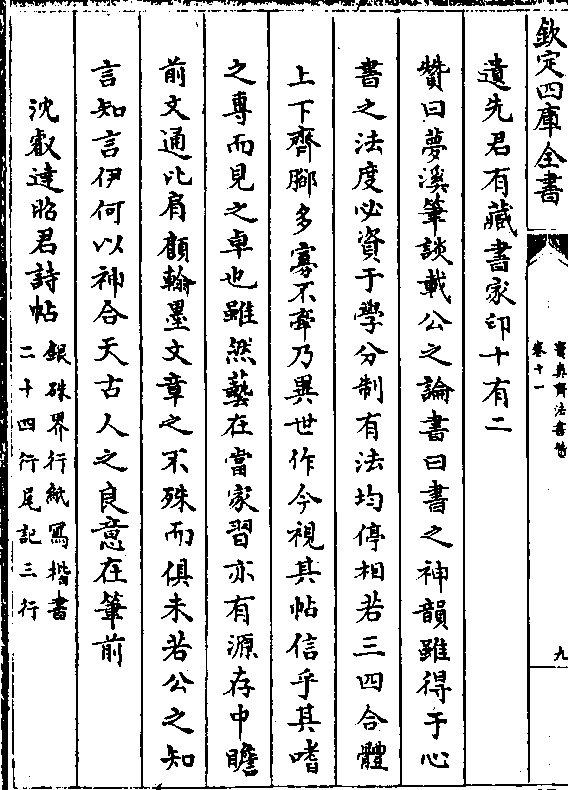 欽定四庫全書
寶真齋法書贊
卷十一
九
遺先君有藏書家印十有二
贊曰夢溪筆談載公之論書曰書之神韻雖得于心
書之法度必資于學分制有法均停相若三四合體
上下齊腳多寡不牽乃異世作今視其帖信乎其嗜
之專而見之卓也雖然藝在當家習亦有源存中瞻
前文通比肩顏翰墨文章之不殊而俱未若公之知
言知言伊何以神合天古人之良意在筆前
沈叡達昭君詩帖
銀硃界行紙寫楷書
二十四行尾記三行